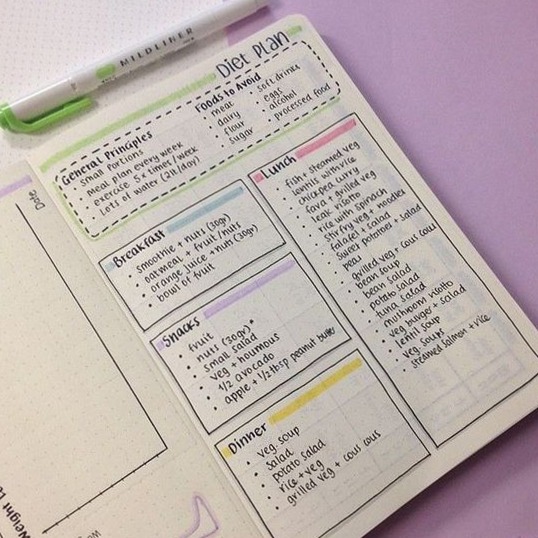 MILDLINER
Diet Plan
General Principles
• Small Portions
• Meal plan every week
• exercise 5x times/week
• Lots of water (2lt/day)
Foods to Avoid
• meat
• dairy
• flour
• sugar
• soft drinks
• eggs
• alcohol
• processed food
Breakfast
• smoothie + nuts (30gr)
• oatmeal + fruit/nuts
• orange juice + nuts (30gr)
• bowl of fruit
Snacks
• fruit
• nuts (30gr)*
• small salad
• veg + houmous
• 1/2 avocado
• apple + 1/2 tbsp peanut butter
Dinner
• veg. soup
• salad
• potato salad
• rice + veg
• grilled veg + cous cous
Lunch
• fish + steamed veg
• lentils with rice
• chickpea curry
• fava + grilled veg
• leak risotto
• rice with spinach
• stirfry veg + noodles
• falafel + salad
• sweet potatoes + salad
• peas
• grilled veg + cous cous
• bean soup
• bean salad
• potato salad
• tuna salad
• mushroom risotto
• veg burger + salad
• lentil soup
• veg. soups
• steamed salmon + rice
Date